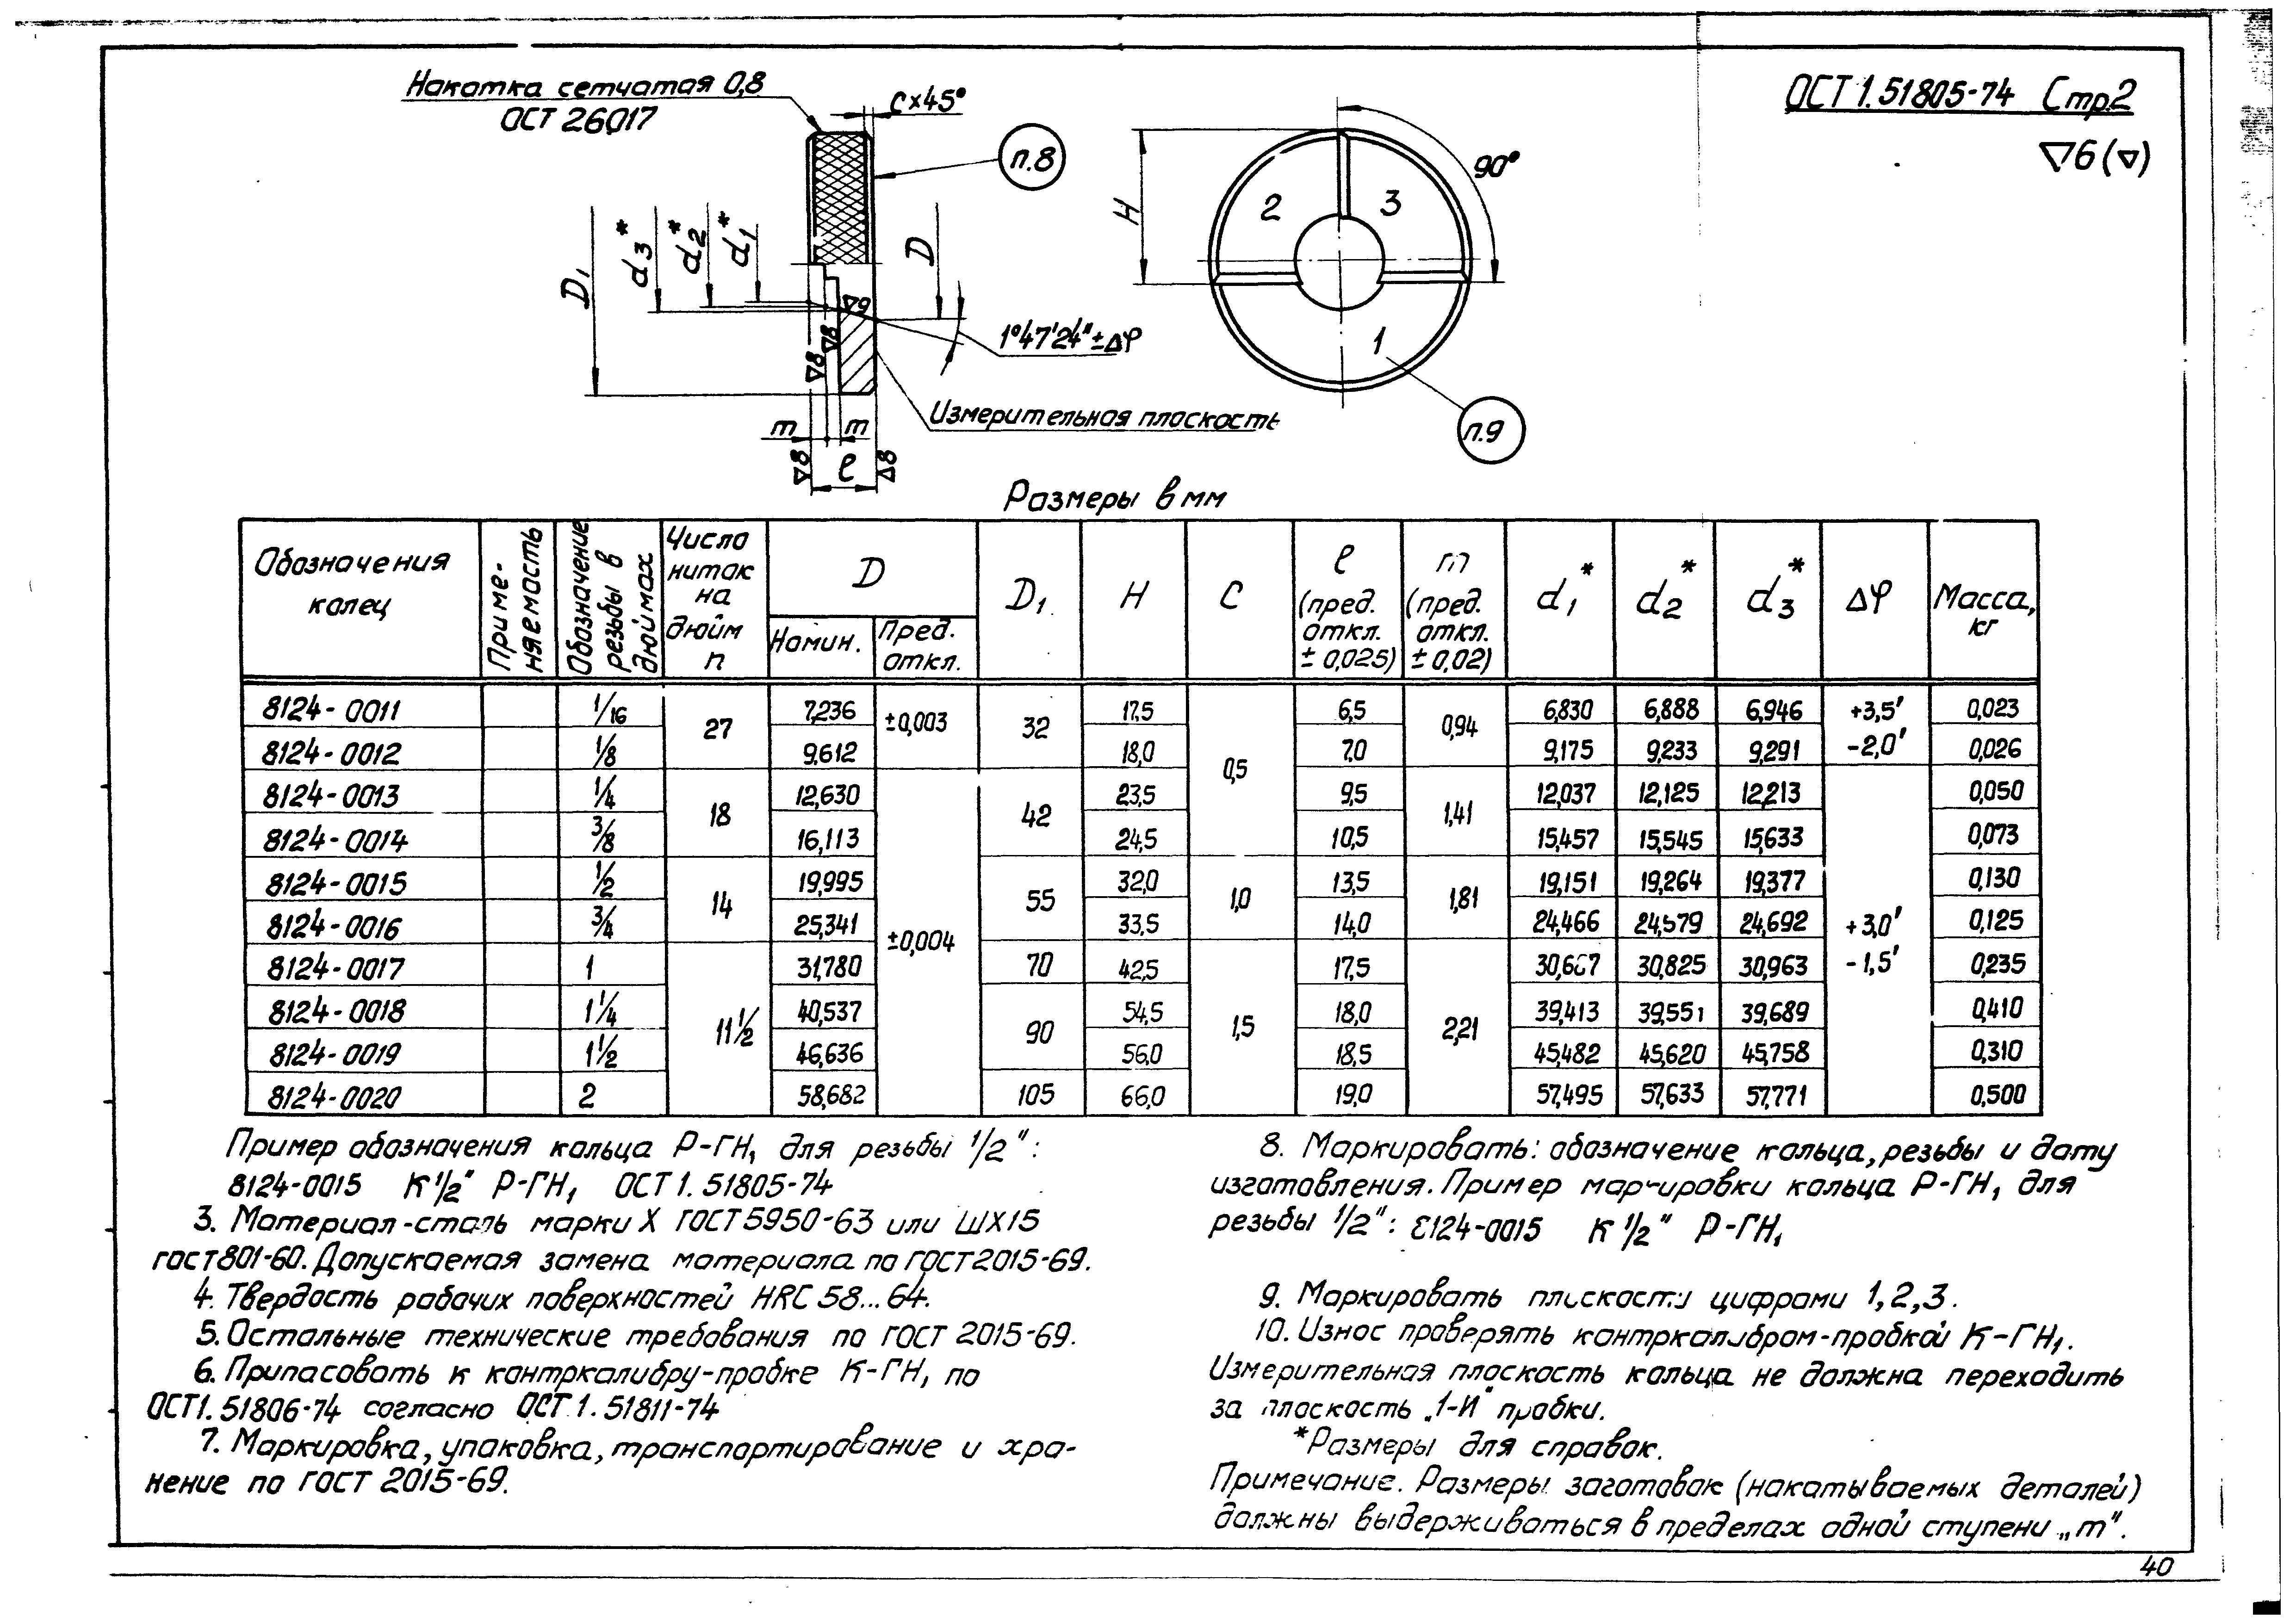 ОСТ 1.51805-74 Стр.2
▽6 (▽)
Накатка сетчатая 0,8
ОСТ 26017
с×45°
п.8
D₁
d₃*
d₂*
d₁*
D
▽9
▽8
▽8
1°47'24"±Δφ
Измерительная плоскость
m m
▽8 ℓ ▽8
H
90°
2 3
1
п.9
Размеры в мм
Обозначения колец | Приме-няемость | Обозначение резьбы в дюймах | Число ниток на дюйм n | D Номин. | D Пред. откл. | D₁ | H | C | ℓ (пред. откл. ± 0,025) | m (пред. откл. ± 0,02) | d₁* | d₂* | d₃* | Δφ | Масса, кг
8124-0011 | 1/16 | 27 | 7,236 | ±0,003 | 32 | 17,5 | 0,5 | 6,5 | 0,94 | 6,830 | 6,888 | 6,946 | +3,5' -2,0' | 0,023
8124-0012 | 1/8 | 9,612 | 18,0 | 7,0 | 9,175 | 9,233 | 9,291 | 0,026
8124-0013 | 1/4 | 18 | 12,630 | ±0,004 | 42 | 23,5 | 9,5 | 1,41 | 12,037 | 12,125 | 12,213 | +3,0' -1,5' | 0,050
8124-0014 | 3/8 | 16,113 | 24,5 | 10,5 | 15,457 | 15,545 | 15,633 | 0,073
8124-0015 | 1/2 | 14 | 19,995 | 55 | 32,0 | 1,0 | 13,5 | 1,81 | 19,151 | 19,264 | 19,377 | 0,130
8124-0016 | 3/4 | 25,341 | 33,5 | 14,0 | 24,466 | 24,579 | 24,692 | 0,125
8124-0017 | 1 | 11 1/2 | 31,780 | 70 | 42,5 | 1,5 | 17,5 | 2,21 | 30,687 | 30,825 | 30,963 | 0,235
8124-0018 | 1 1/4 | 40,537 | 90 | 54,5 | 18,0 | 39,413 | 39,551 | 39,689 | 0,410
8124-0019 | 1 1/2 | 46,636 | 56,0 | 18,5 | 45,482 | 45,620 | 45,758 | 0,310
8124-0020 | 2 | 58,682 | 105 | 66,0 | 19,0 | 57,495 | 57,633 | 57,771 | 0,500
Пример обозначения кольца Р-ГН₁ для резьбы 1/2":
8124-0015 К 1/2" Р-ГН₁ ОСТ 1.51805-74
3. Материал-сталь марки Х ГОСТ 5950-63 или ШХ15
ГОСТ 801-60. Допускаемая замена материала по ГОСТ 2015-69.
4. Твердость рабочих поверхностей HRC 58...64.
5. Остальные технические требования по ГОСТ 2015-69.
6. Припасовать к контркалибру-пробке К-ГН₁ по
ОСТ 1.51806-74 согласно ОСТ 1.51811-74
7. Маркировка, упаковка, транспортирование и хра-
нение по ГОСТ 2015-69.
8. Маркировать: обозначение кольца, резьбы и дату
изготовления. Пример маркировки кольца Р-ГН₁ для
резьбы 1/2": 8124-0015 К 1/2" Р-ГН₁
9. Маркировать плоскости цифрами 1, 2, 3.
10. Износ проверять контркалибром-пробкой К-ГН₁.
Измерительная плоскость кольца не должна переходить
за плоскость „1-И" пробки.
*Размеры для справок.
Примечание. Размеры заготовок (накатываемых деталей)
должны выдерживаться в пределах одной ступени „m".
40